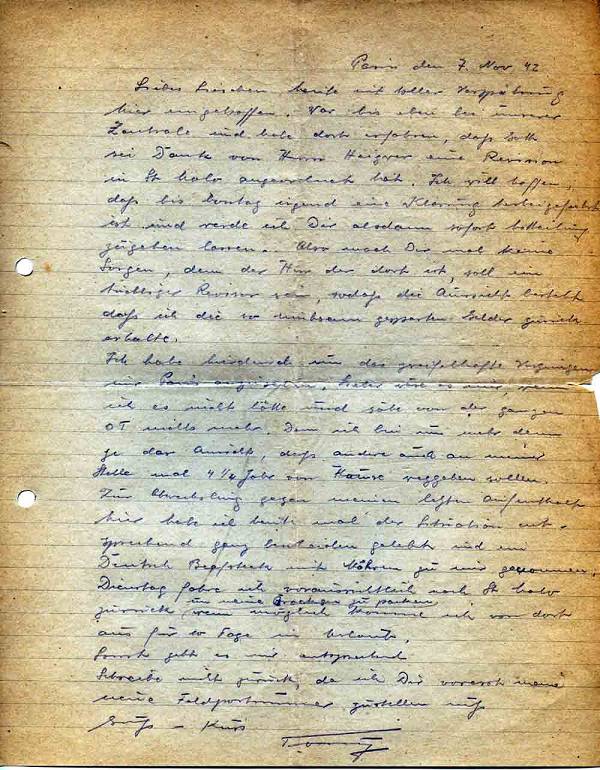 Paris den 7. Nov 42
Liebes Lieschen heute mit toller Verspätung
hier eingetroffen. War bis eben bei unserer
Zentrale und habe dort erfahren, daß Gott
sei Dank von Herrn eine Revision
in St Malo angeordnet hat. Ich will hoffen,
daß bis irgend eine Klärung herbeigeführt
ist und werde ich Dir alsdann sofort Mitteilung
zugehen lassen. Also mach Dir mal keine
Sorgen, denn der Herr der dort ist, soll ein
tüchtiger Revisor sein, sodaß die Aussicht besteht
daß ich die so mühsam gesparten Gelder zurück
erhalte.
Ich habe hierdurch nun das zweifelhafte Vergnügen
mir Paris anzusehen. Lieber wäre es mir, wenn
ich es nicht hätte und sähe von der ganzen
OT nichts mehr. Denn ich bin nun mehr denn
je der Ansicht, daß andere auch an meiner
Stelle mal 4 1/4 Jahr von Hause weggehen sollen.
Zur Abwechslung gegen meinen letzten Aufenthalt
hier habe ich heute mal der Situation ent-
sprechend ganz bescheiden gelebt und ein
Deutsch Beefsteak mit Möhren zu mir genommen.
Dienstag fahre ich voraussichtlich nach St Malo
zurück um meine Brocken zu packen wenn möglich komme ich von dort
aus für 10 Tage in Urlaub.
Sonst geht es mir entsprechend
Schreibe nicht zurück, da ich Dir vorerst meine
neue Feldpostnummer zustellen muß
Gruß – Kuss